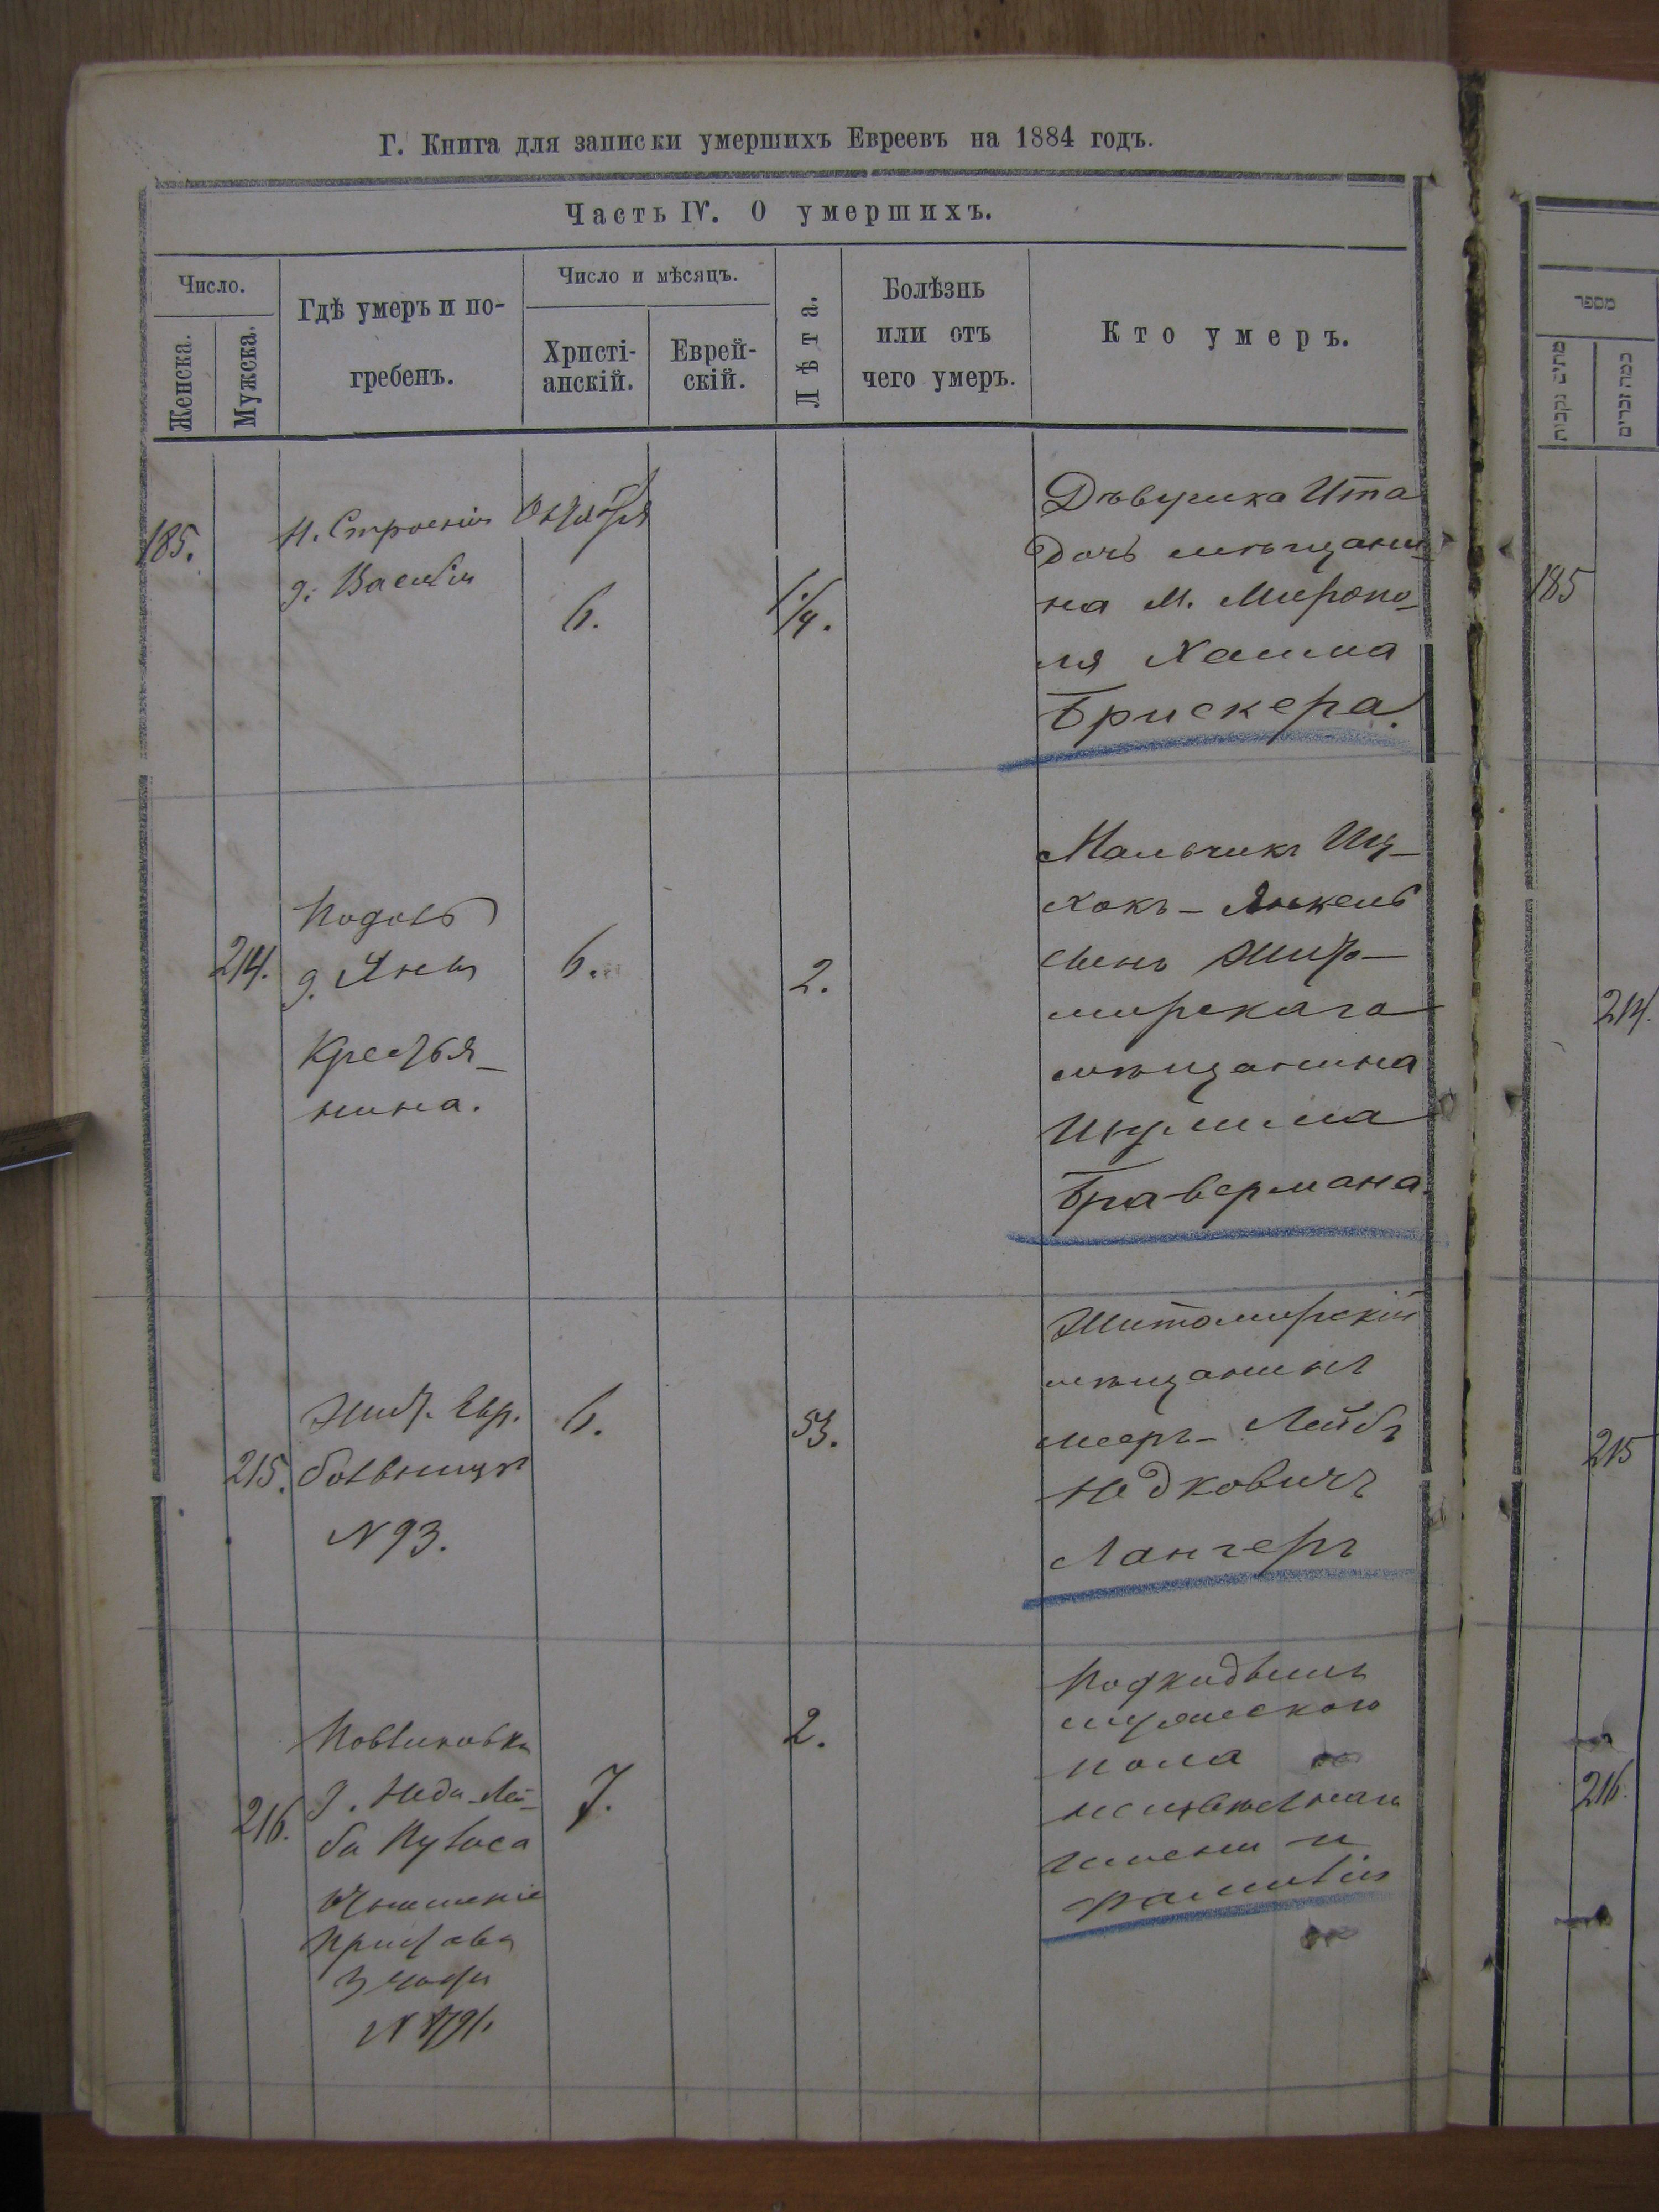 Г. Книга для записки умершихъ Евреевъ на 1884 годъ.
Часть IV. О умершихъ.
Число.
Женска.
Мужска.
Гдѣ умеръ и по-
гребенъ.
Число и мѣсяцъ.
Христі-
анскій.
Еврей-
скій.
Лѣта.
Болѣзнь
или отъ
чего умеръ.
Кто умеръ.
185.
Н. Строенія
д. Василія
Октября
6.
1/4.
Дѣвушка Ита
дочь мѣщани-
на М. Миропо-
ля Хаима
Брискера.
214.
Подолъ
д. Яня
Крестья-
нина.
6.
2.
Мальчикъ Иц-
хокъ - Янкель
сынъ Жито-
мирскаго
мѣщанина
Шулима
Бравермана.
215.
Жит. Евр.
больница
N 93.
6.
53.
Житомирскій
мѣщанинъ
Мееръ - Лейбъ
Недковичъ
Лангеръ
216.
Павликовка
д. Неда-Лей-
ба
Отношеніе
Пристава
3 части
N 8791.
7.
2.
Подкидышъ
мужескаго
пола
неизвѣстнаго
имени и
фамиліи
מספר
185
214.
215
216.